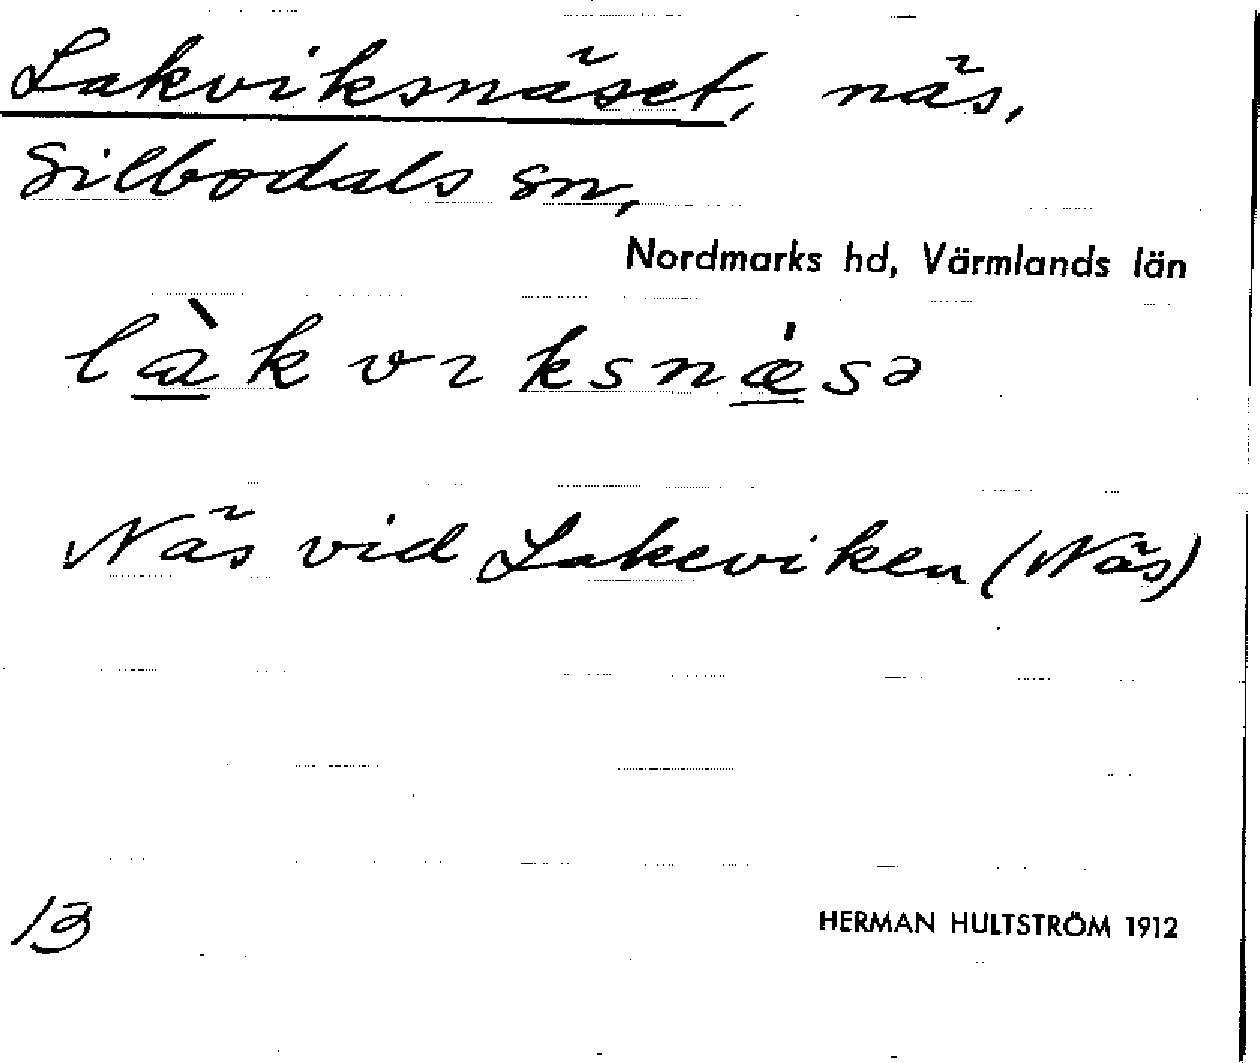 Lakviksnäset, näs,
Silbodals sn,
Nordmarks hd, Värmlands län
là̲kvɩksnǽ̲sə
Näs vid Lakeviken (Näs)
13
HERMAN HULTSTRÖM 1912